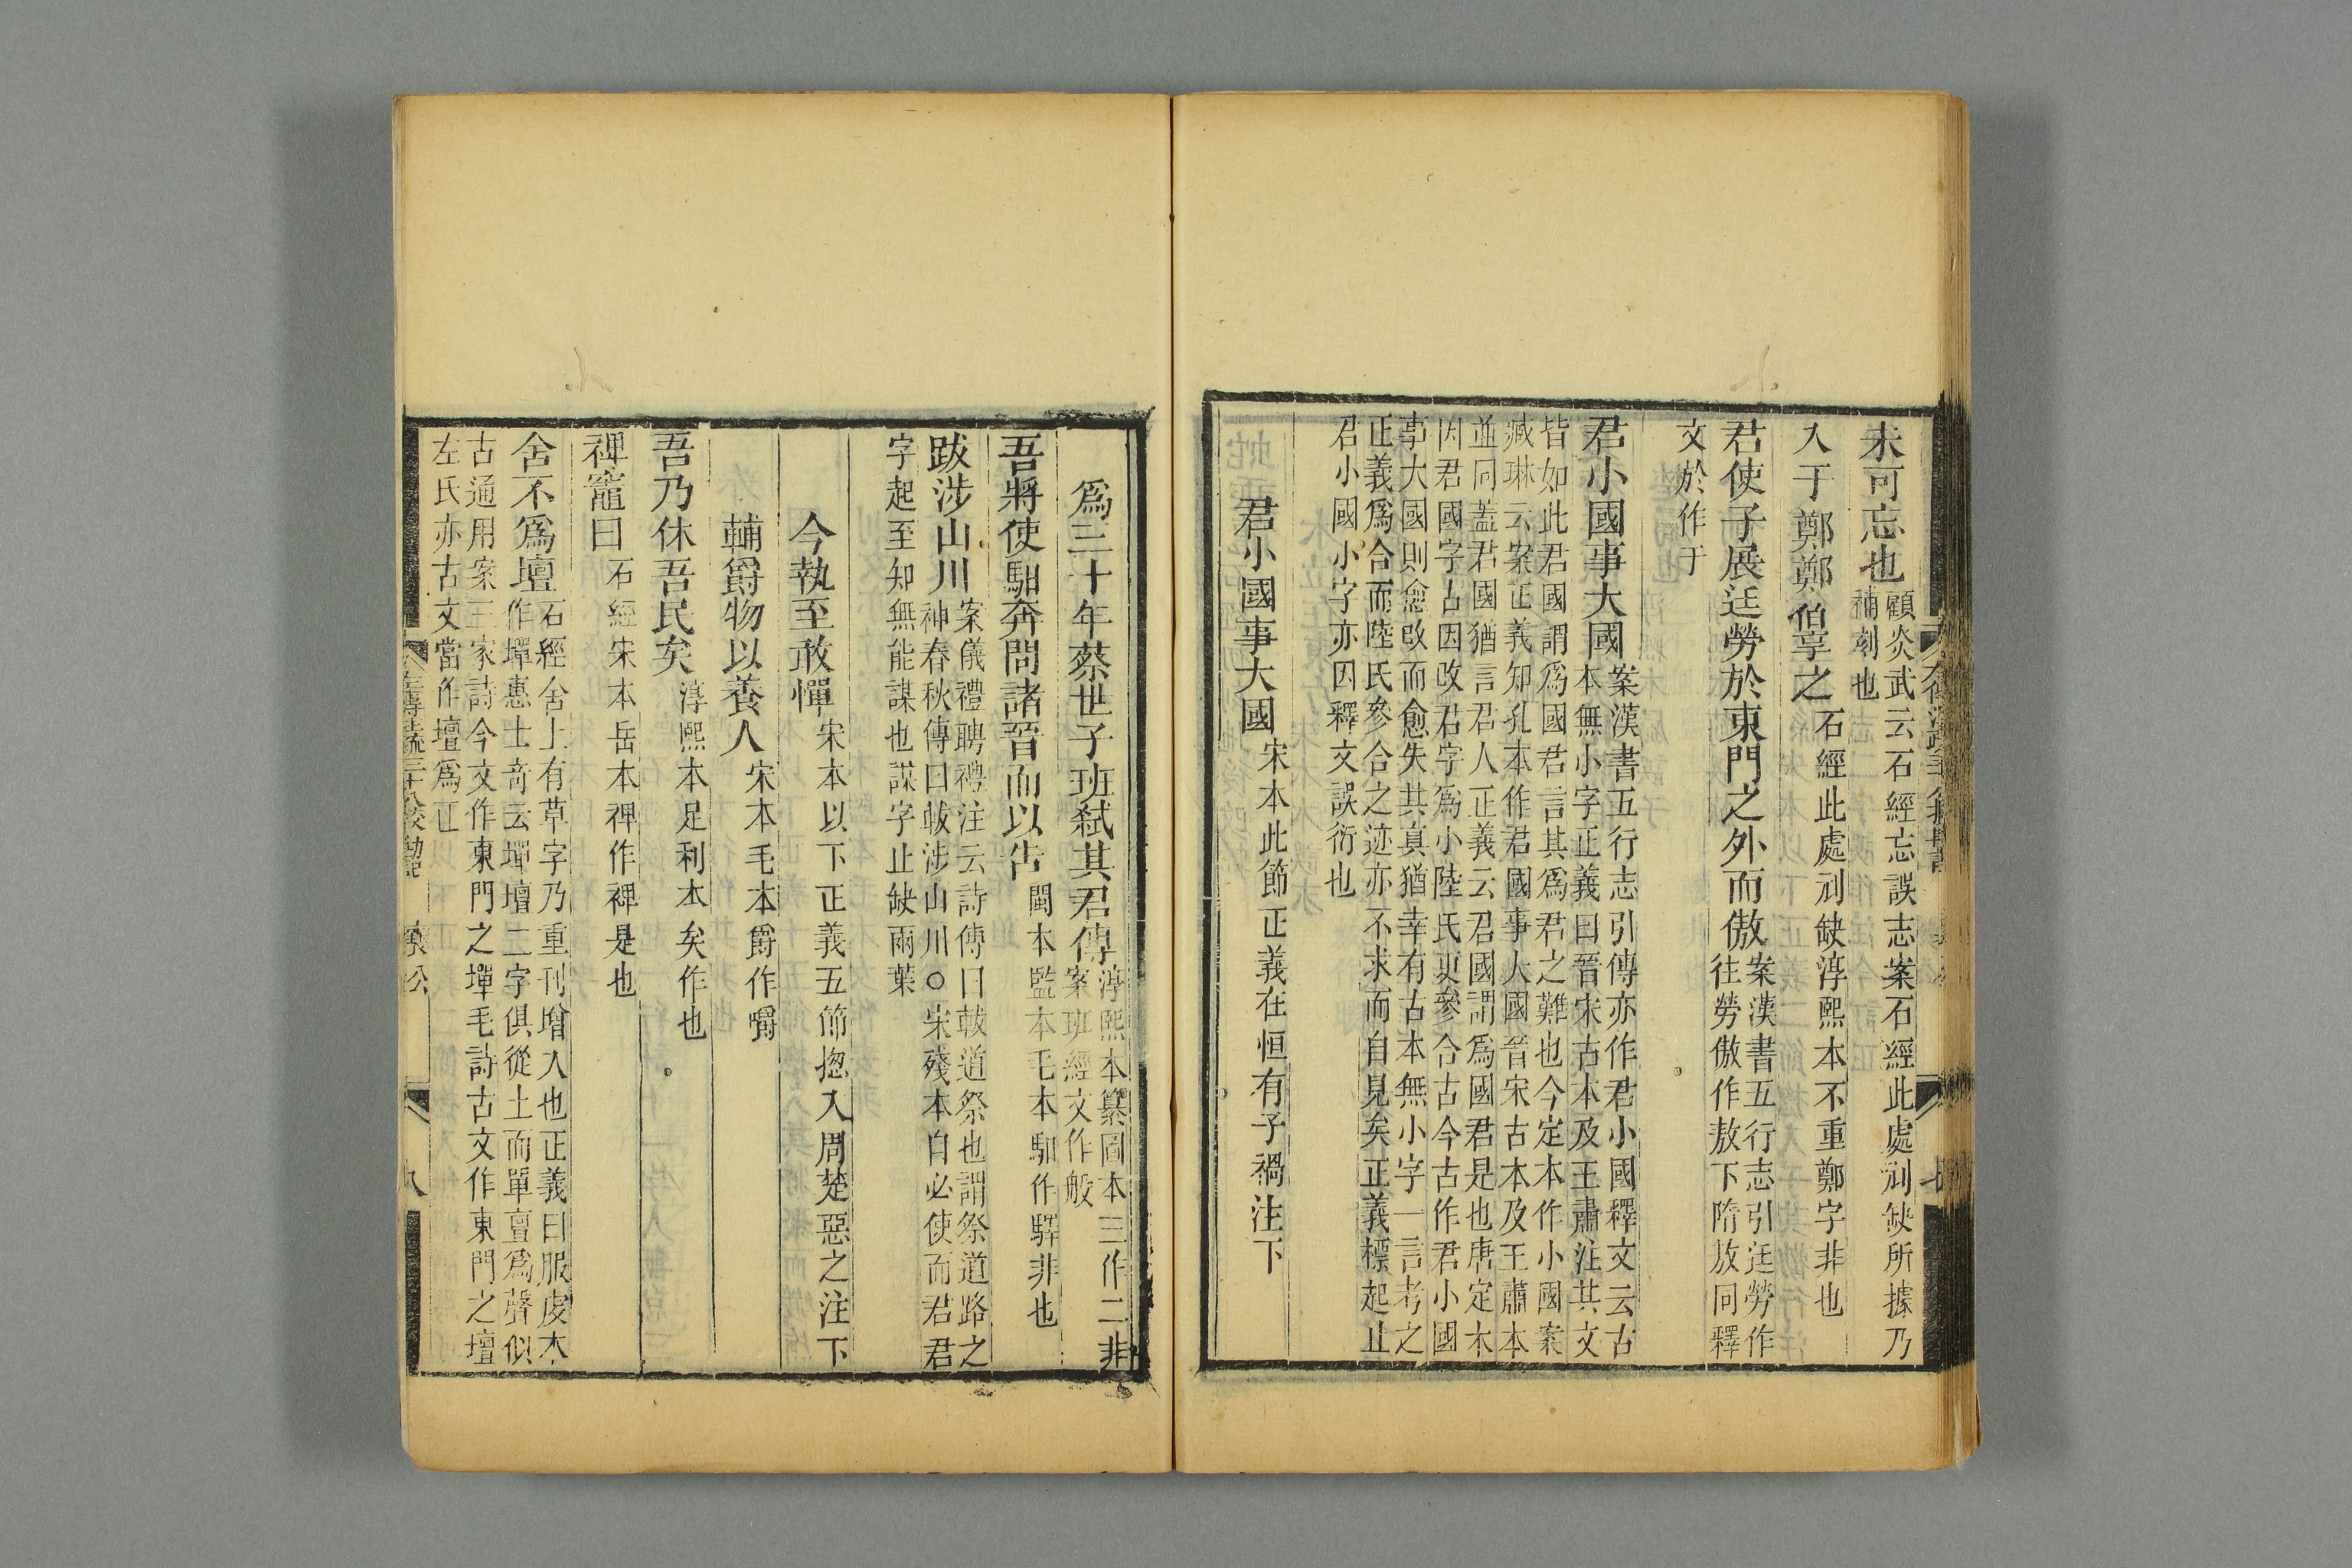 未可忘也顧炎武云石經忘誤志案石經此處刓缺所據乃
補刻也
入于鄭鄭伯享之石經此處刓缺淳熙本不重鄭字非也
君使子展迋勞於東門之外而傲案漢書五行志引迋勞作
往勞傲作敖下隋放同釋
文於作于
君小國事大國案漢書五行志引傳亦作君小國釋文云古
本無小字正義曰晉宋古本及王肅注其文
皆如此君國謂爲國君言其爲君之難也今定本作小國案
臧琳云案正義知孔本作君國事大國晉宋古本及王肅本
並同蓋君國猶言君人正義云君國謂爲國君是也唐定本
因君國字古因改君字爲小陸氏更參合古今古作君小國
事大國則愈改而愈失其真猶幸有古本無小字一言考之
正義爲合而陸氏參合之迹亦不求而自見矣正義標起止
君小國小字亦因釋文誤衍也
君小國事大國宋本此節正義在恒有子禍注下
爲三十年蔡世子班弒其君傳淳熙本纂圖本三作二非
案班經文作般
吾將使馹奔問諸晉而以告閩本監本毛本馹作驛非也
跋涉山川案儀禮聘禮注云詩傳曰軷道祭也謂祭道路之
神春秋傳曰軷涉山川○宋殘本自必使而君君
字起至知無能謀也謀字止缺兩葉
今執至敢憚宋本以下正義五節揔入周楚惡之注下
輔爵物以養人宋本毛本爵作嚼
吾乃休吾民矣淳熙本足利本矣作也
禆竈曰石經宋本岳本禆作裨是也
舍不爲壇石經舍上有草字乃重刊增入也正義曰服虔本
作墠惠士奇云墠壇二字俱從土而單亶爲聲似
古通用案三家詩今文作東門之墠毛詩古文作東門之壇
左氏亦古文當作壇爲正